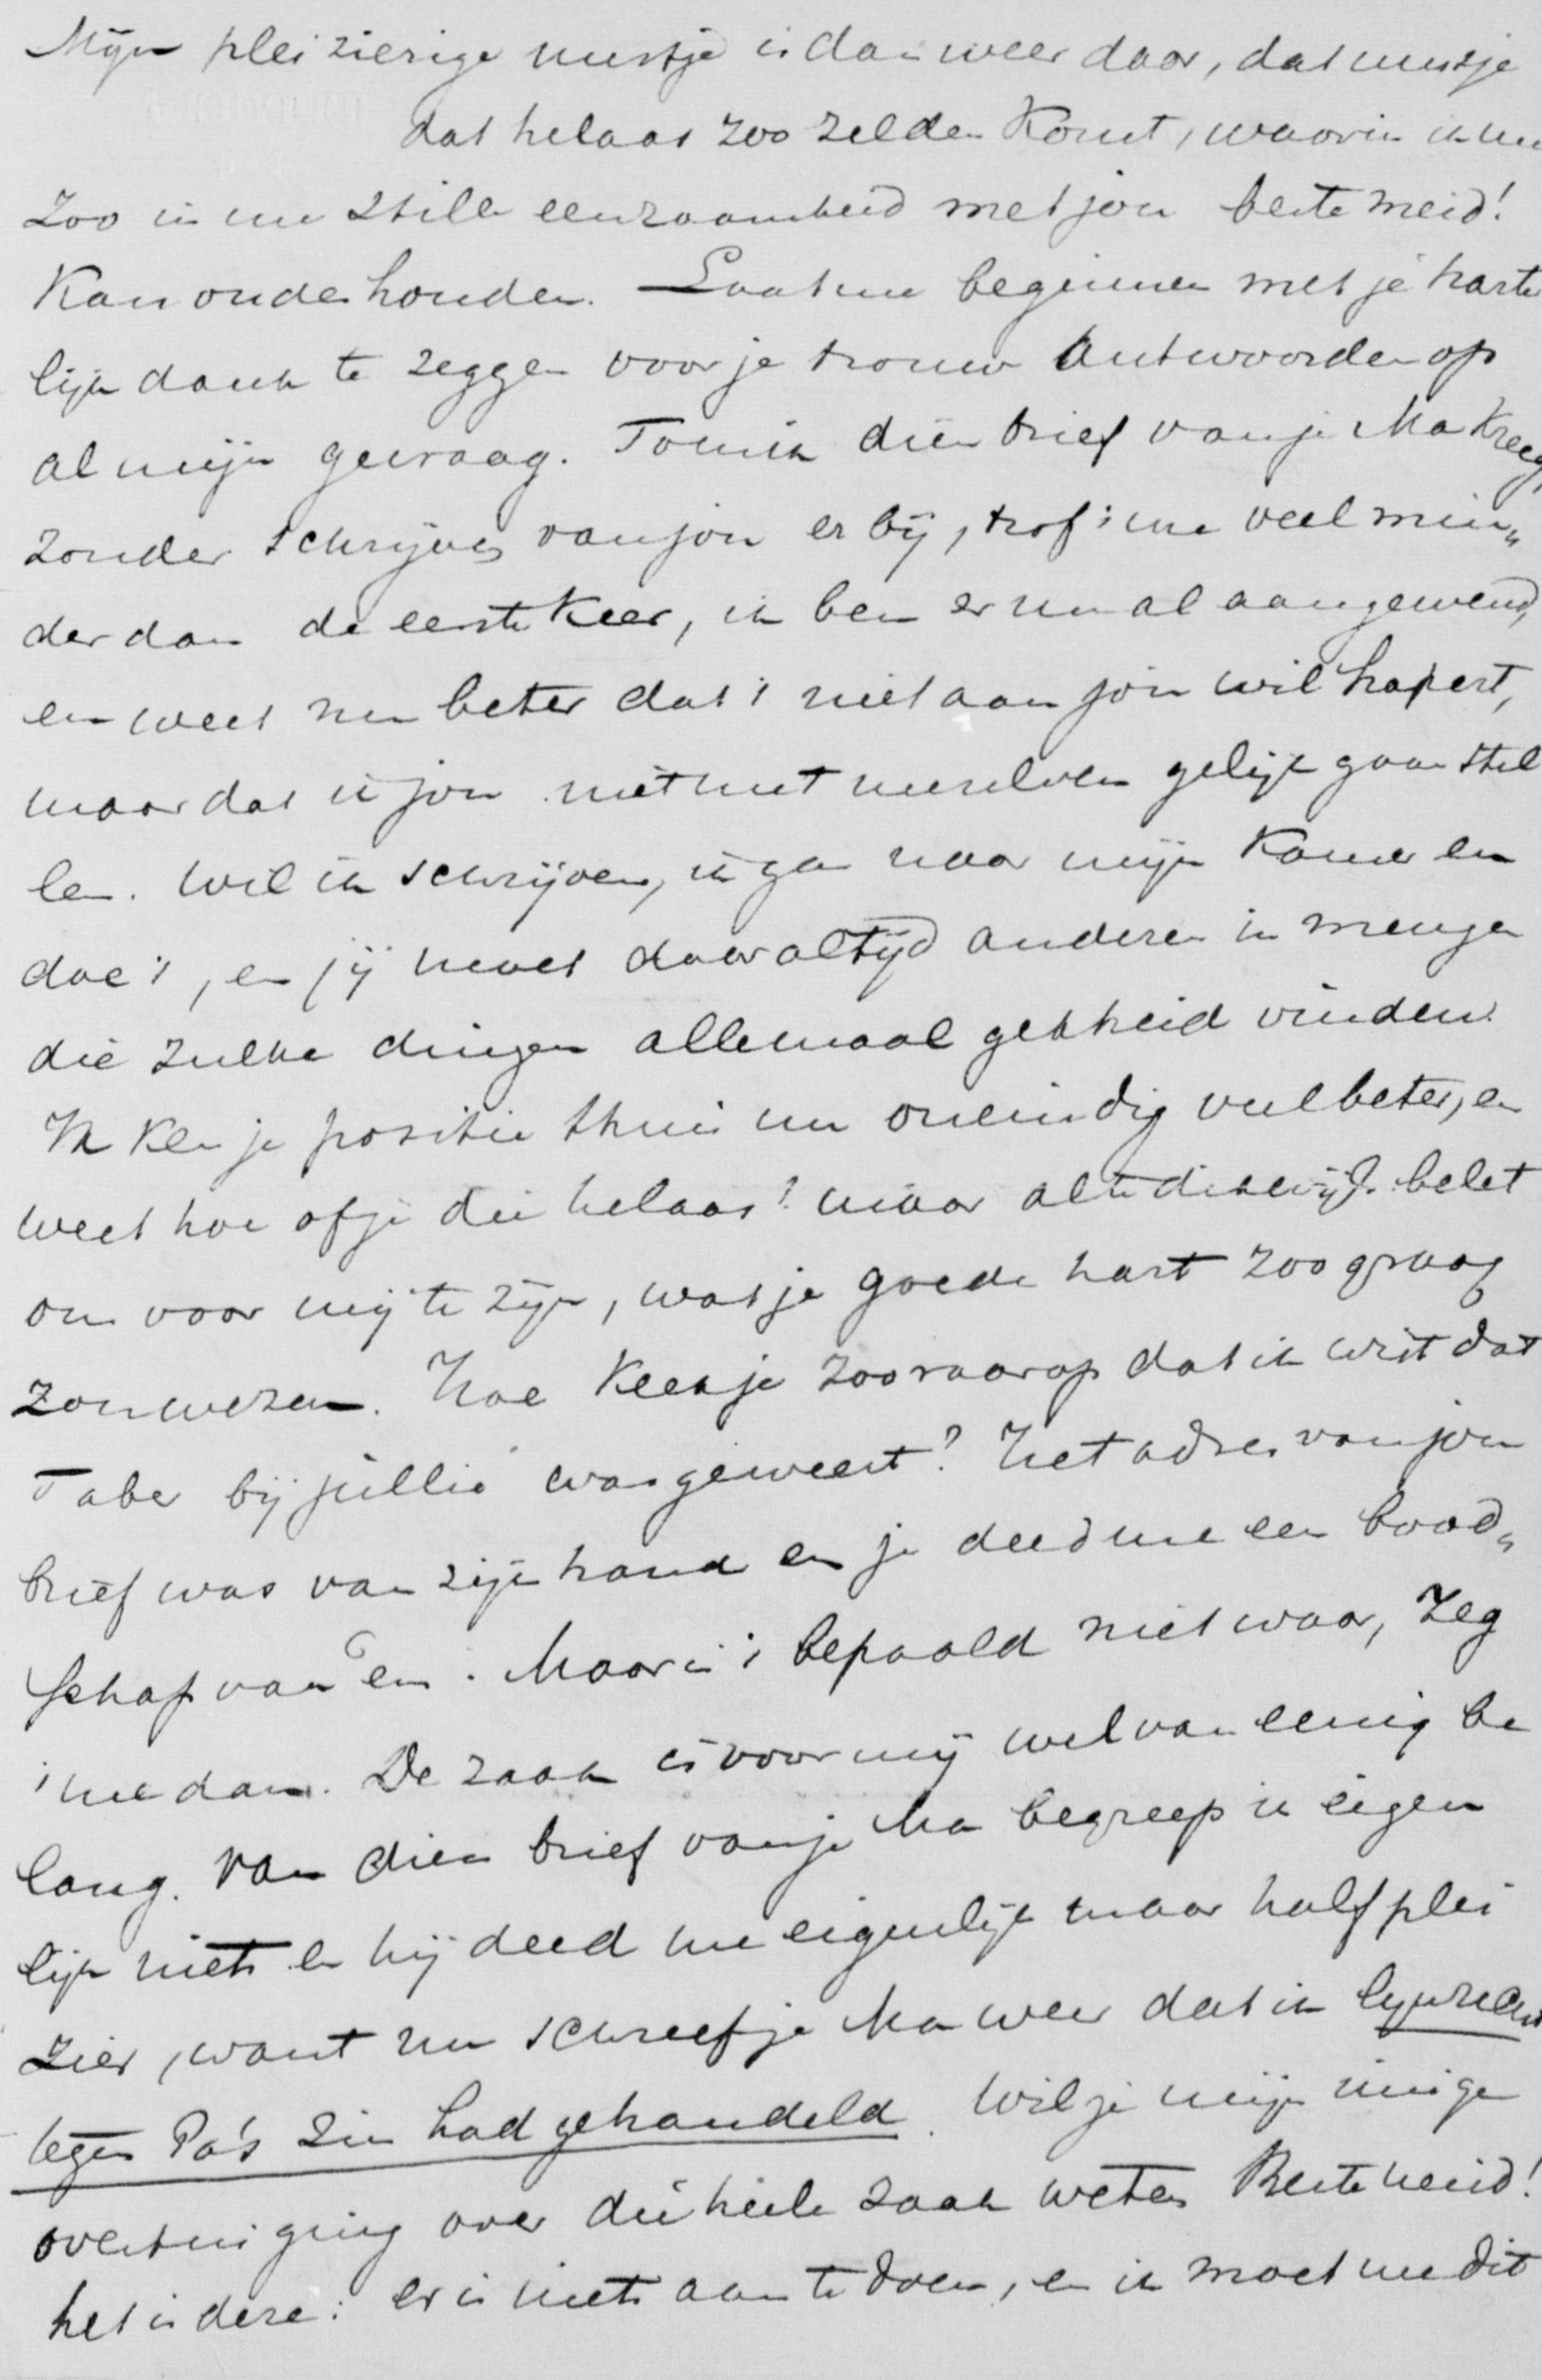 Mijn pleizierige uurtje is dan weer daar, dat uurtje
dat helaas zoo zelden komt, waarin ik me
zoo in me stille eenzaamheid met jou beste meid!
Kan onderhouden. Laat me beginnen met je harte
lijk dank te zeggen voor je trouw antwoorden op
al mijn gevraag. Toen ik dien brief van je Ma kreeg,
zonder schrijven van jou er bij, trof 't me veel min„
der dan de eerste keer, ik ben er nu al aan gewend,
en weet nu beter dat 't niet aan jou wil hapert,
maar dat ik jou niet met mezelven gelijk gaan stel
len. Wil ik schrijven, ik ga naar mijn kamer en
doe 't, en jij moet daar altijd anderen in mengen
die zulke dingen allemaal gekheid vinden.
Ik ken je positie thuis nu oneindig veel beter, en
weet hoe of je die helaas! maar al te dikwijls belet
om voor mij te zijn, wat je goede hart zoo graag
zou wezen. Hoe keek je zoo raar op dat ik wist dat
Tabe bij jullie was geweest? Het adres van jou
brief was van zijn hand en je deed me een bood„
schap van em. Maar is 't bepaald niet waar, zeg
't me dan. De zaak is voor mij wel van eenig be
lang. Van dien brief van je Ma begreep ik eigen
lijk niets en hij deed me eigenlijk maar half plei
zier, want nu schreef je Ma weer dat ik lijnrecht
tegen Pa's zin had gehandeld. Wil je mijn innige
overtuiging over die heele zaak weten Beste meid!
het is deze: er is niets aan te doen, en ik moet me dit